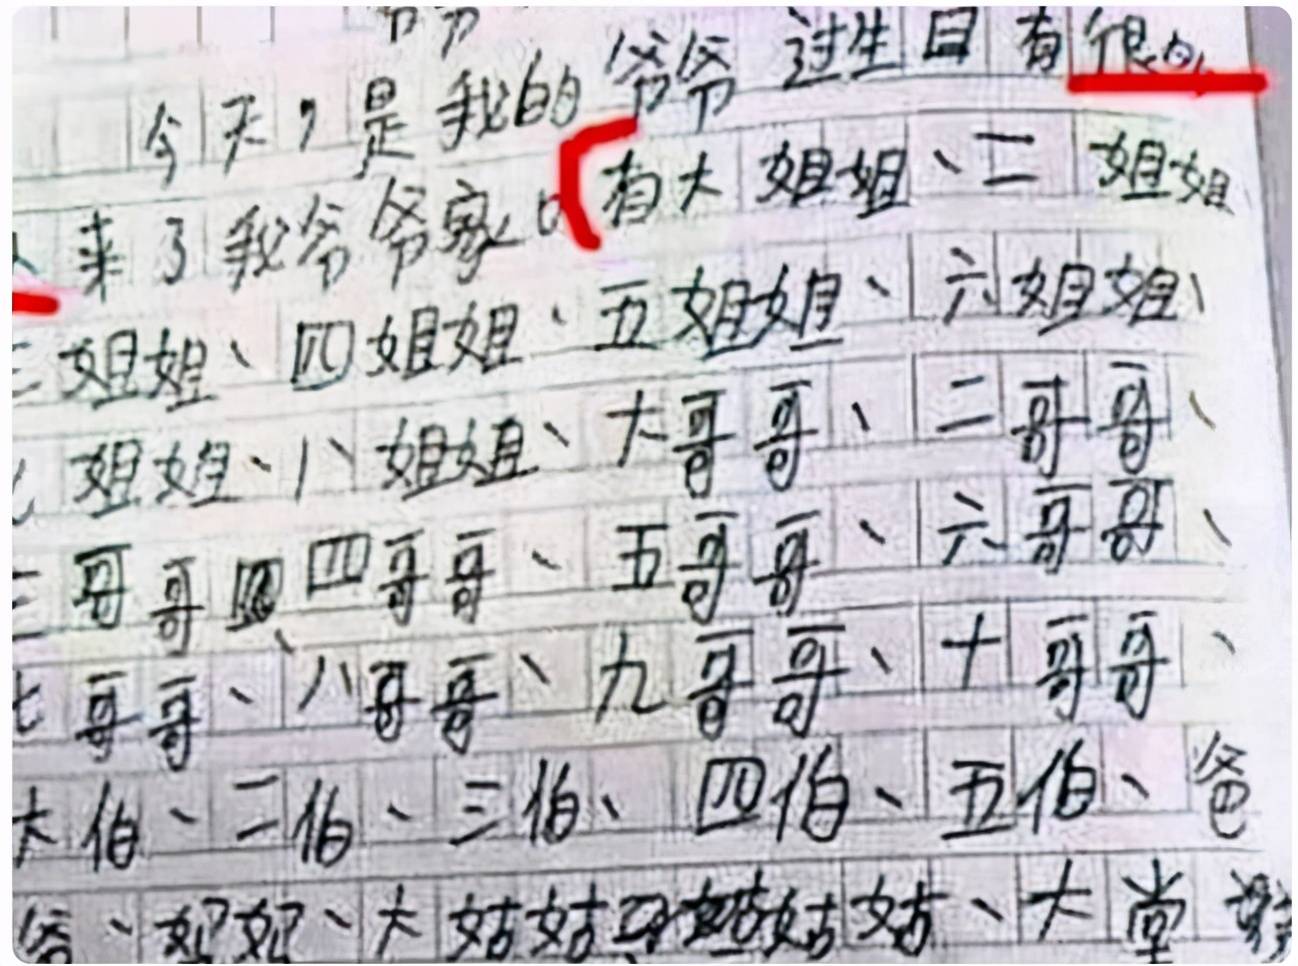 爷爷
今天,是我的爷爷过生日有很的
人来了我爷爷家。有大姐姐、二姐姐
三姐姐、四姐姐、五姐姐、六姐姐、
七姐姐、八姐姐、大哥哥、二哥哥、
三哥哥四哥哥、五哥哥、六哥哥、
七哥哥、八哥哥、九哥哥、十哥哥、
大伯、二伯、三伯、四伯、五伯、爸
爸、妈妈、大姑姑姑姑、大堂